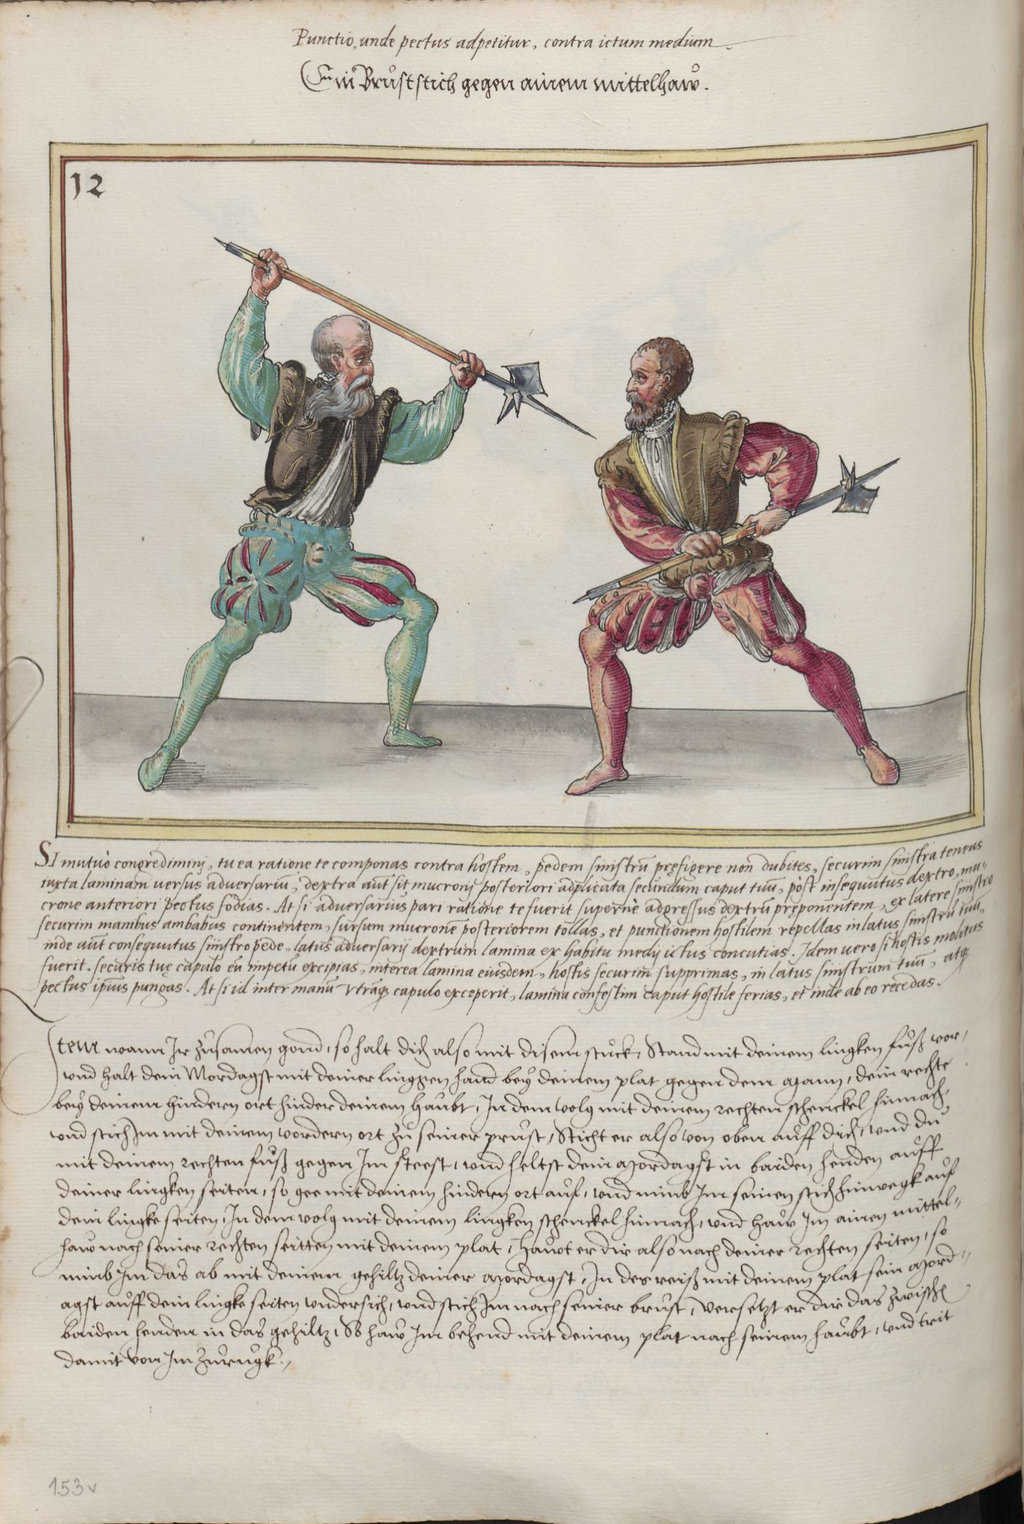 Punctio, unde pectus adpetitur, contra ictum medium.
Ein Bruststich gegen ainem mittelhaw.
12
SI mutuò congredimini, tu ea ratione te componas contra hostem, pedem sinistrū prefigere non dubites, securim sinistra teneas
iuxta laminam versus adversariū, dextra aūt sit mucroni posteriori adplicata secundum caput tuū, post insequutus dextro, mu-
crone anteriori pectus fodias. At si adversarius pari ratione te fuerit supernè adgressus dextrū preponentem, ex latere sinistro
securim manibus ambabus continentem, sursum mucrone posteriorem tollas, et punctionem hostilem repellas in latus sinistrū tuū,
inde aūt consequutus sinistro pede, latus adversarij dextrum lamina ex habitu medij ictus concutias. Idem vero si hostis molitus
fuerit, securis tuę capulo eū impetū excipias, interea lamina eiusdem, hostis securim supprimas, in latus sinistrum tuū, atq
pectus ipsius pungas. At si id inter manū utraq capulo exceperit, lamina confestim caput hostile ferias, et inde ab eo recedas.
Item wann Jr zusamen gond, so halt dich also mit disem stuck, Stand mit deinem lingken fuß vor,
und halt dein Mordagst mit deiner linggen hand bey deinem plat gegen dem mann, dein rechte
bey deinem hinderen ort hinder deinem haubt, In dem volg mit deinem rechten schenckel hinnach,
und stich Jm mit deinem vordern ort zu seiner prust, Sticht er also von oben auff dich, und du
mit deinem rechten fuß gegen Jm steest, und heltst dein mordagst in baiden henden auff
deiner lingken seiten, so gee mit deinem hindern ort auf, und nimb Jm seinen stich hinwegk auf
dein lingke seiten, In dem volg mit deinem lingken schenckel hinnach, und haw Jm ainen mittel-
haw nach seiner rechten seitten mit deinem plat, Hawt er dir also nach deiner rechten seiten, so
nimb Jm das ab mit deinem gehiltz deiner mordagst, In des reiß mit deinem plat sein mord-
agst auff dein lingke seiten undersich, und stich Jm nach seiner brust, Versetzt er dir das zwischē
baiden henden in das gehiltz, So haw Jm behend mit deinem plat nach seinem haubt, und trit
damit von Jm zurugk.
153v